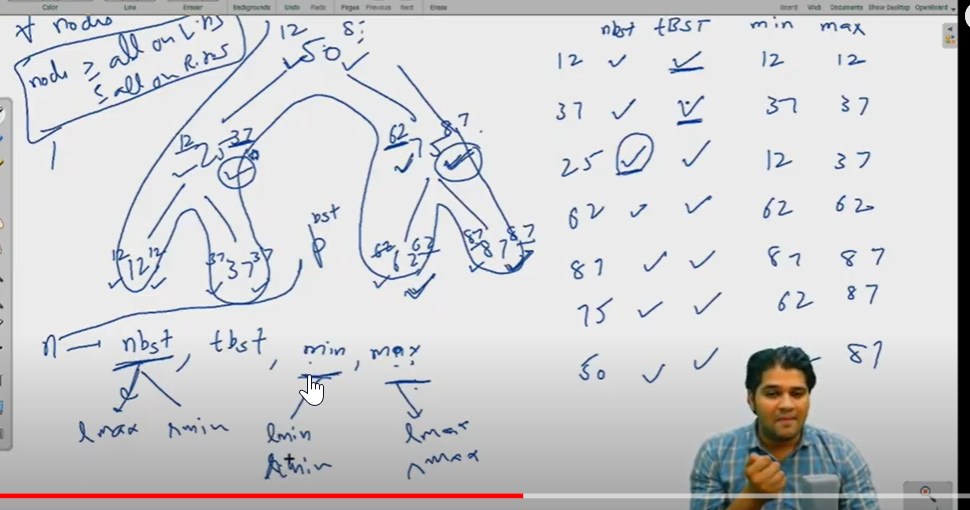 Color Line Eraser Backgrounds Undo Redo Pages Previous Next Erase Board Web Documents Show Desktop OpenBoard
∀ nodes
node ≥ all on LHS
≤ all on R.HS
12 50 8
12 25 37
62 75 87
12 12 12
37 37 37
62 62 62
87 87 87
bst
p
n → nbst, tbst, min, max
lmax rmin
lmin lmax
rmin rmax
nbst tBST min max
12 ✓ ✓ 12 12
37 ✓ ✓ 37 37
25 ✓ ✓ 12 37
62 ✓ ✓ 62 62
87 ✓ ✓ 87 87
75 ✓ ✓ 62 87
50 ✓ ✓ 87